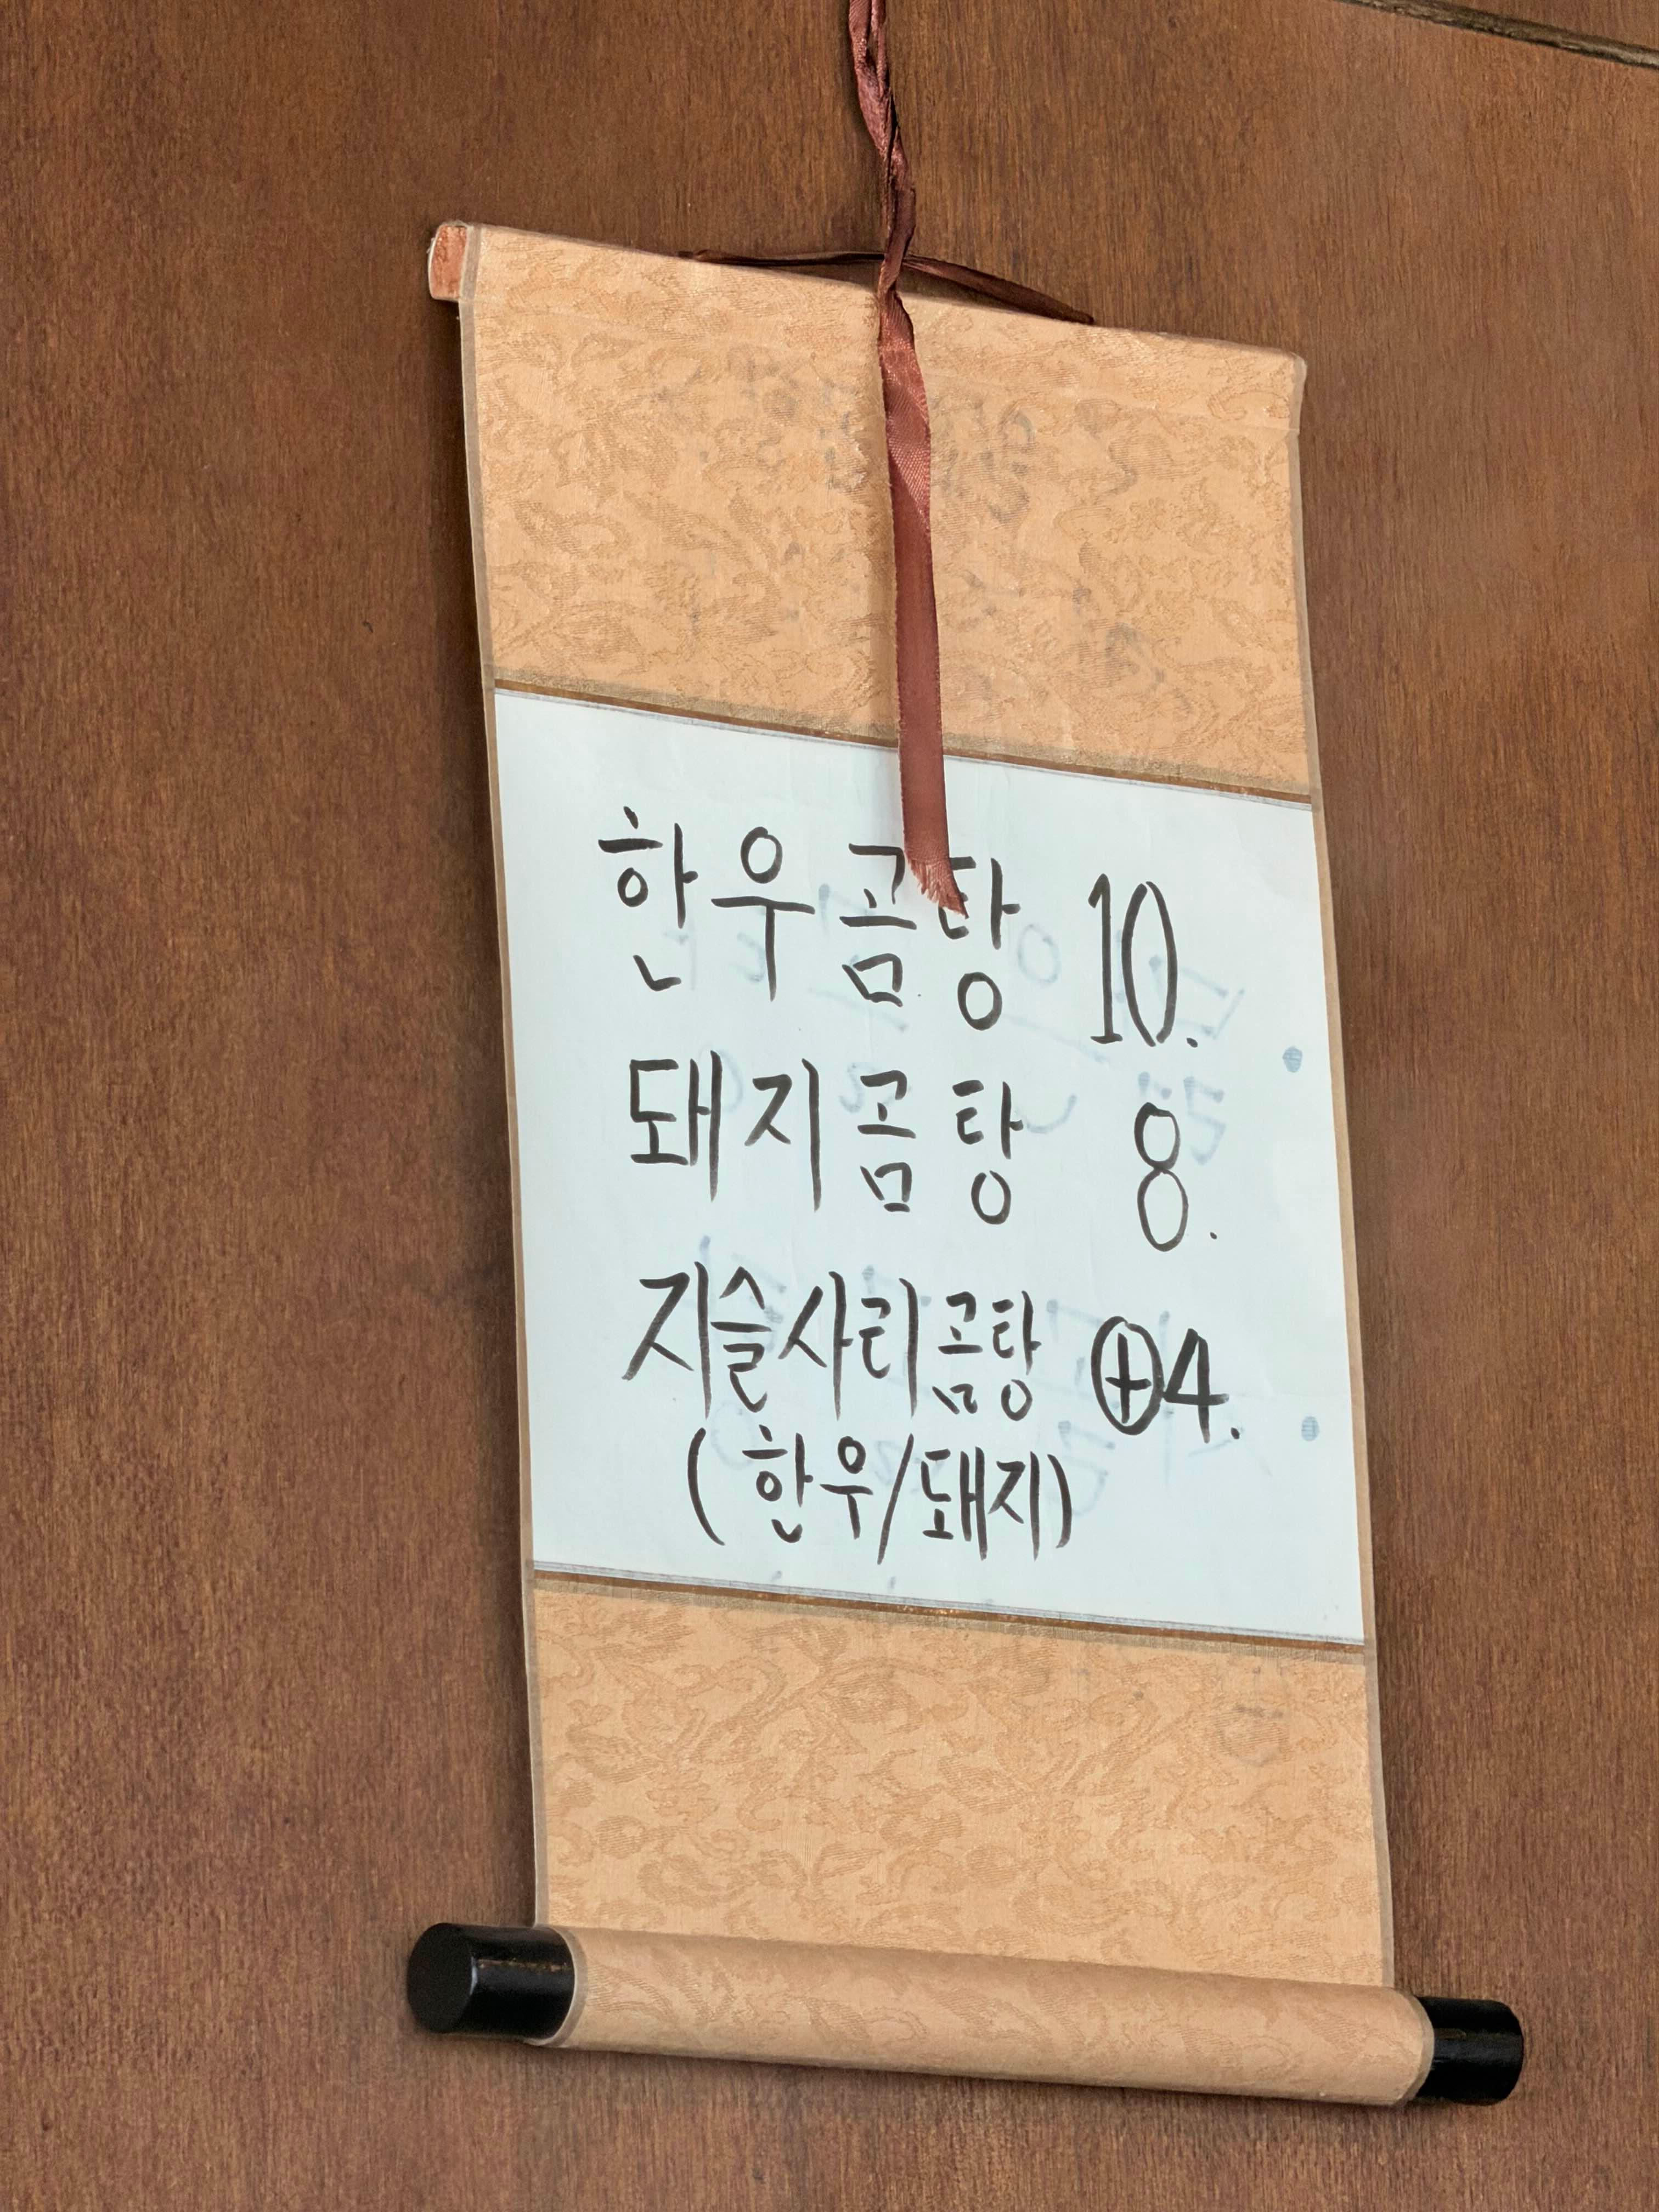 한우곰탕 10.
돼지곰탕 8.
지슬사리곰탕 ⊕4.
(한우/돼지)